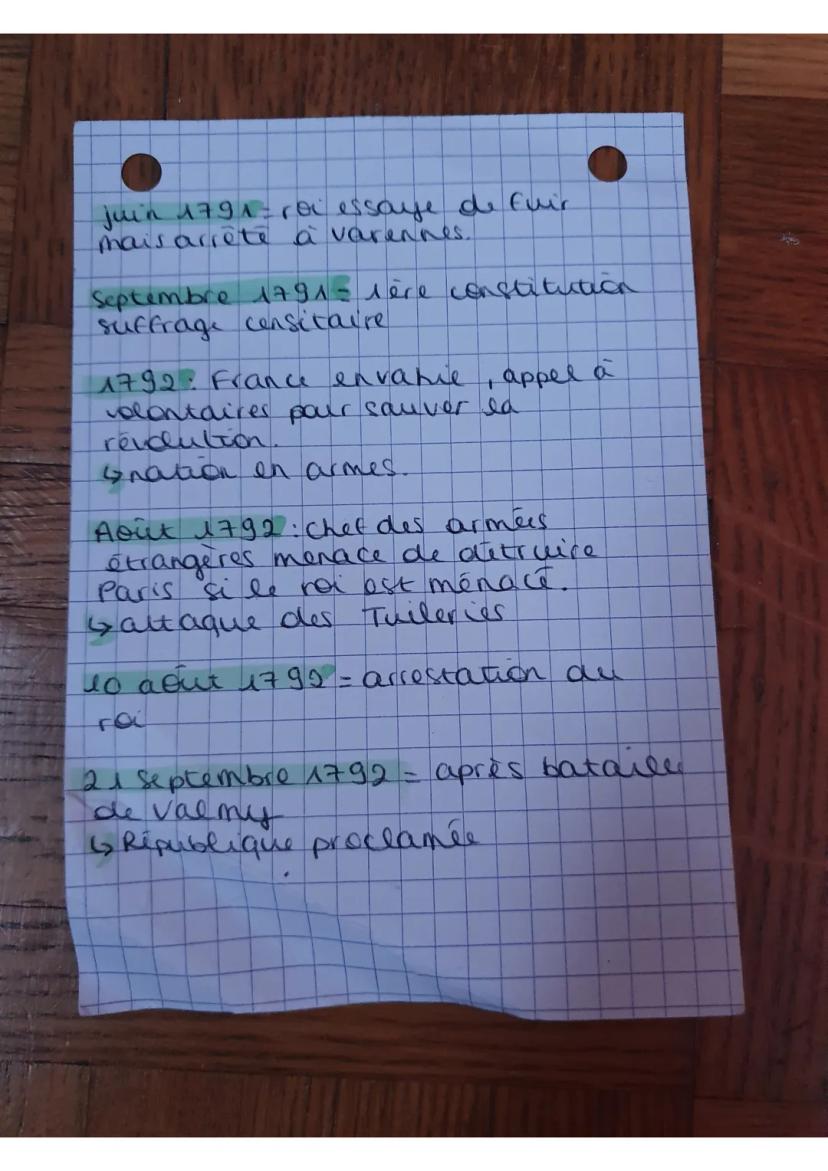 juin 1791 = roi essaye de fuir
mais arrêté à varennes.
Septembre 1791 = 1ère constitution
suffrage censitaire
1792 : France envahie, appel à
volontaires pour sauver la
révolution.
↳ nation en armes.
Août 1792 : chef des armées
étrangères menace de détruire
Paris si le roi est ménacé.
↳ attaque des Tuileries
10 août 1792 = arrestation du
roi
21 septembre 1792 = après bataille
de Valmy
↳ République proclamée